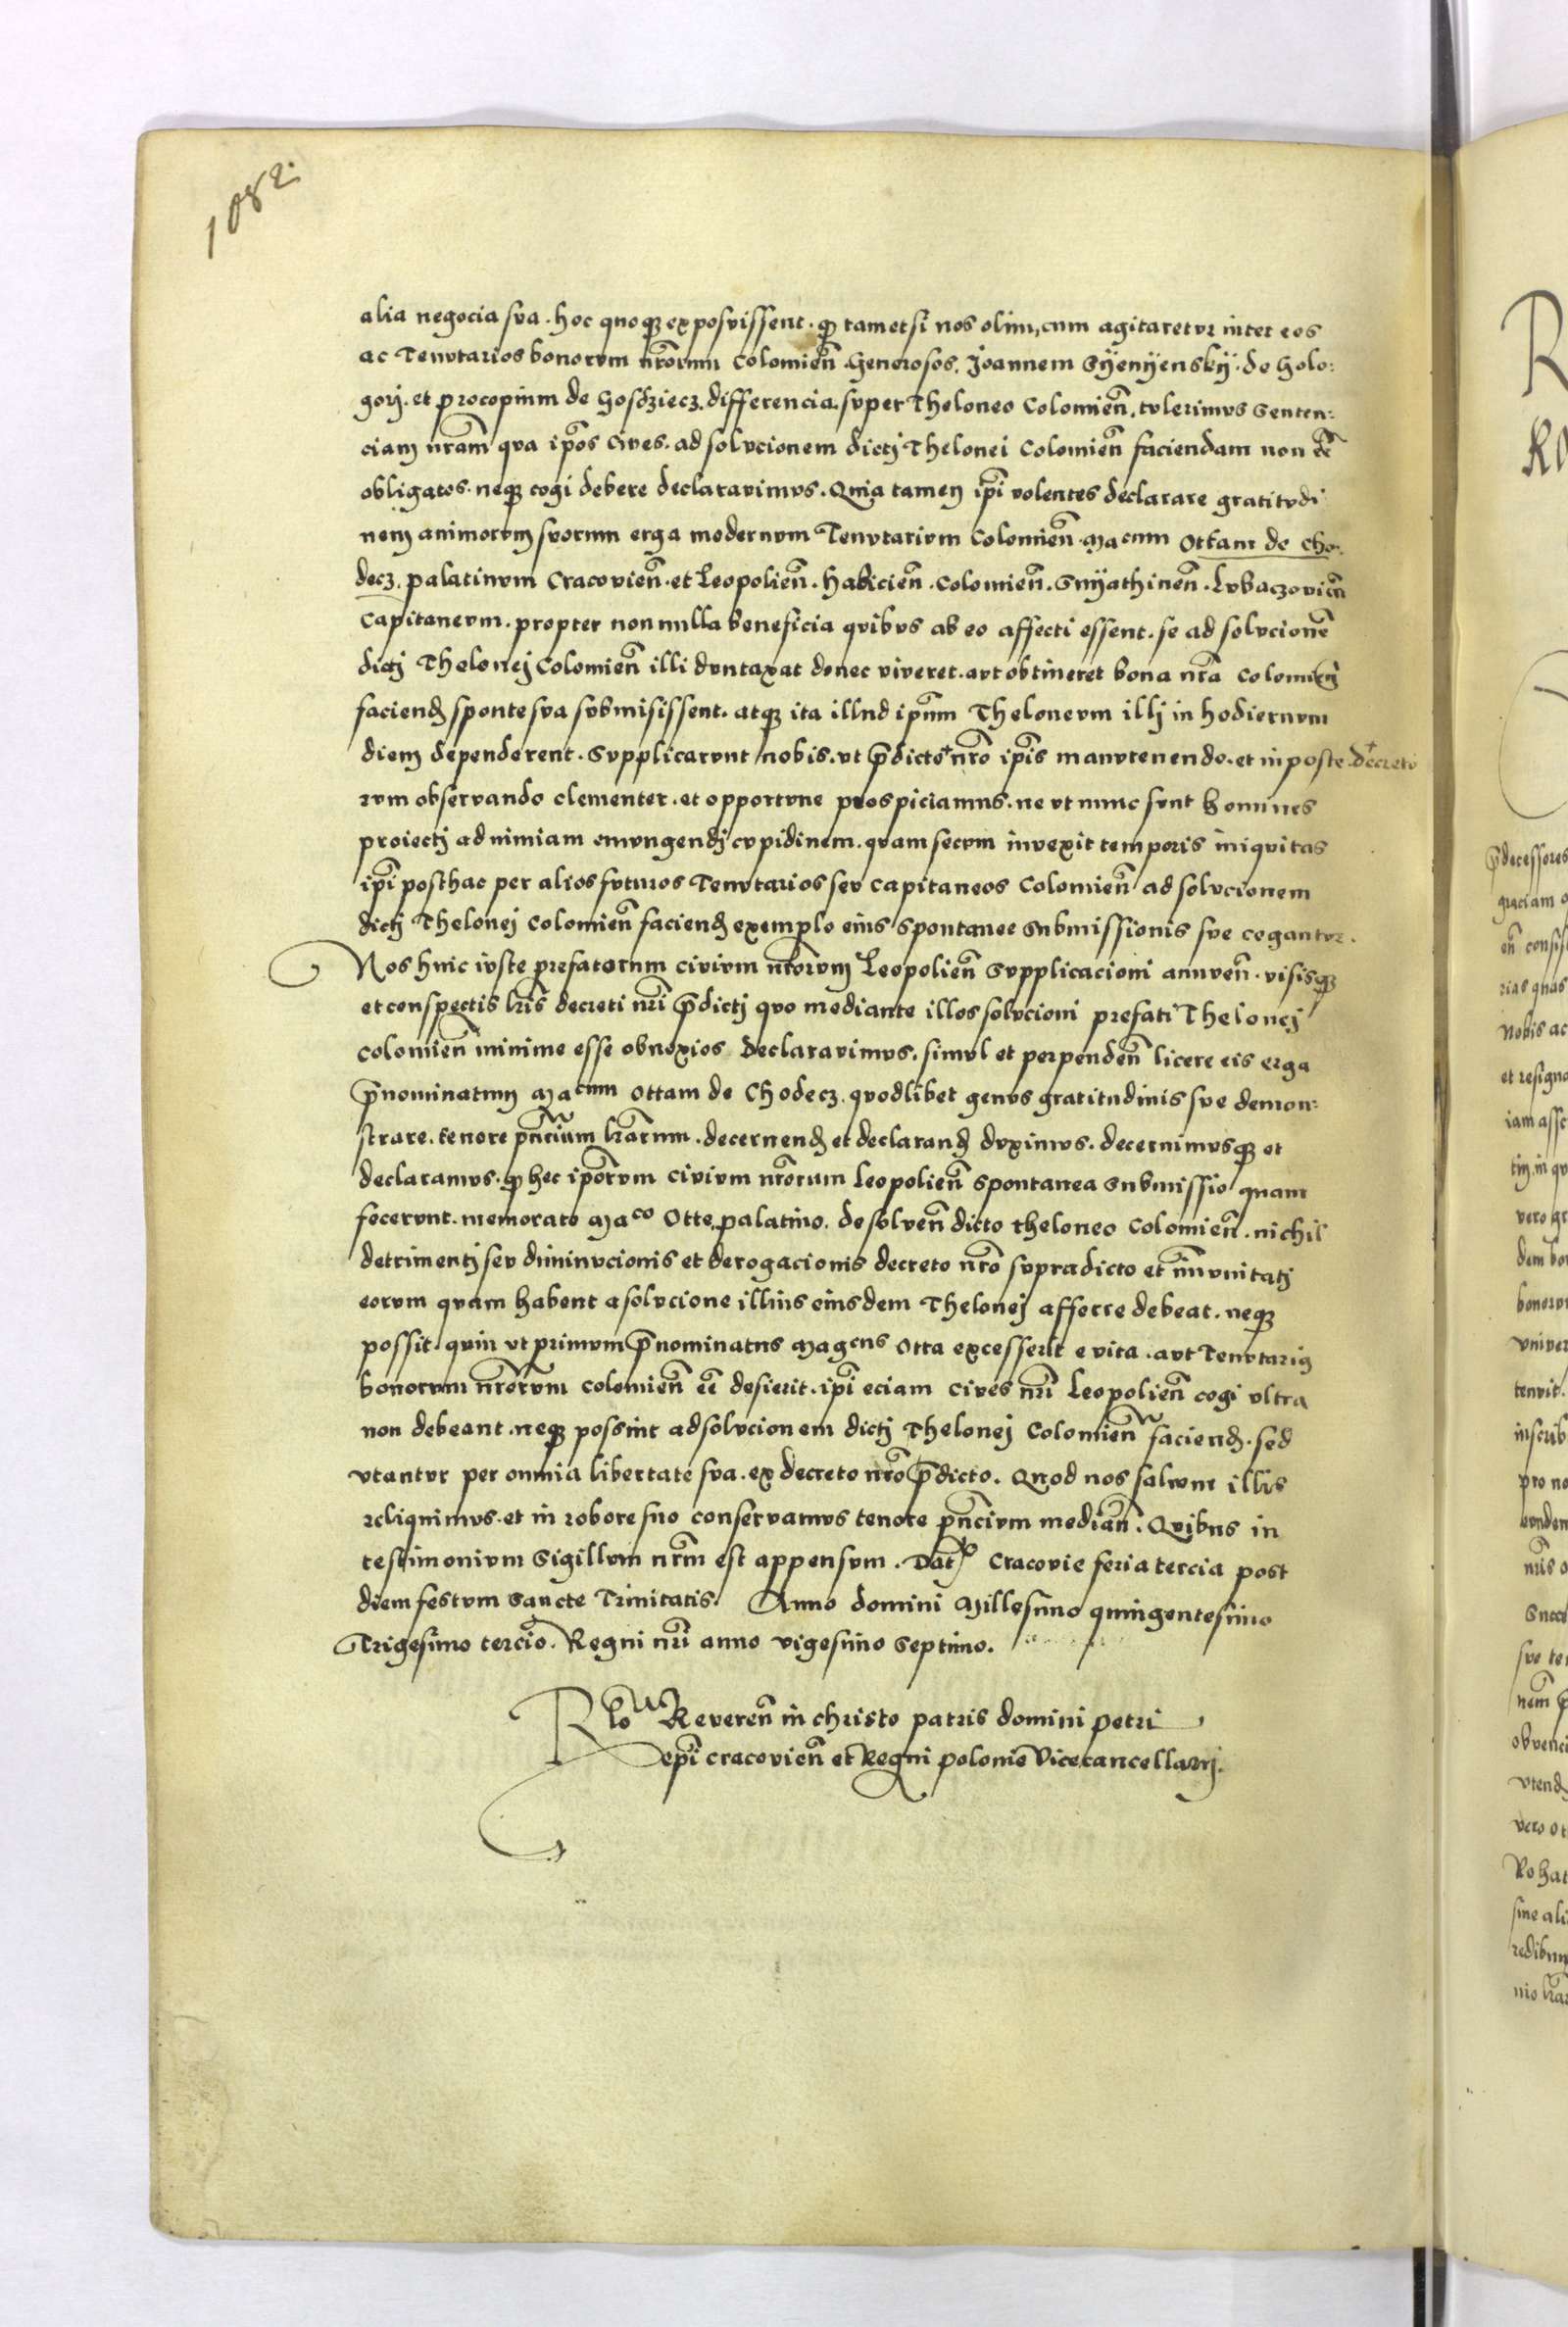 1082.
alia negocia sua. hoc quoqꝫ exposuissent. ꝙ tametsi nos olim, cum agitaretur inter eos
ac Tenutarios bonorum nrõrum Colomieñ. Generosos. Joannem Syenyensky. de Golo:
gory. et procopium de Gosdziecz. differencia. super Theloneo Colomieñ. tulerimus senten:
ciam nrãm qua ipõs Cives. ad solucionem dictj Thelonei Colomieñ faciendam non eē
obligatos. neqꝫ cogi debere declaravimus. Quia tamen ipĩ volentes declarare gratitudi
nem animorum suorum erga modernum Tenutarium Colomieñ. Macum Ottam de Cho:
decz. palatinum Cracovieñ. et Leopolieñ. Halicieñ. Colomieñ. Snyathineñ. Lubaczovieñ
Capitaneum. propter nonnulla beneficia quibus ab eo affecti essent. se ad solucionē
dictj Thelonej Colomieñ illi duntaxat donec viveret. aut obtineret bona nrã Colomieñ
facienđ sponte sua submisissent. atqꝫ ita illud ipsũm Theloneum illj in hodiernum
diem dependerent. Supplicarunt nobis. ut p̃dicto + nrõ ipĩs manutenendo. et in poste + decreto
rum observando clementer. et opportune prospiciamus. ne ut nunc sunt homines
proiectj ad nimiam emungendj cupidinem. quam secum invexit temporis iniquitas
ipĩ posthac per alios futuros Tenutarios seu Capitaneos Colomieñ ad solucionem
dictj Thelonej Colomieñ facienđ exemplo eius spontanee submissionis sue cogantur.
Nos huic iuste prefatorum civium nrõrum Leopolieñ supplicacioni annueñ. visisqꝫ
et conspectis lrĩs decreti nrĩ p̃dictj quo mediante illos solucioni prefati Thelonej
Colomieñ minime esse obnoxios declaravimus. simul et perpendeñ licere eis erga
p̃nominatum Macum Ottam de Chodecz. quodlibet genus gratitudinis sue demon:
strare. tenore pñcium lrãrum. decernenđ et declaranđ duximus. decernimusqꝫ et
declaramus. ꝙ hec ipõrum civium nrõrum Leopolieñ spontanea submissio quam
fecerunt. memorato Maco Otte palatino. de solveñ dicto theloneo Colomieñ. nichil
detrimentj seu diminucionis et derogacionis decreto nrõ supradicto et im̃unitatj
eorum quam habent a solucione illius eiusdem Thelonej afferre debeat. neqꝫ
possit. quin ut primum p̃nominatus Magcus Otta excesserit e vita. aut Tenutarius
bonorum nrõrum Colomieñ eē desierit. ipĩ eciam Cives nrĩ Leopolieñ cogi ultra
non debeant. neqꝫ possint ad solucionem dictj Thelonej Colomieñ facienđ. sed
utantur per omnia libertate sua. ex decreto nrõ p̃dicto. Quod nos salvum illis
reliquimus. et in robore suo conservamus tenore pñcium mediañ. Quibus in
testimonium Sigillum nrm̃ est appensum. Daṫ Cracovie feria tercia post
diem festum Sancte Trinitatis. Anno domini Millesimo quingentesimo
Trigesimo tercio. Regni nrĩ anno vigesimo septimo.
Rlõ Revereñ in christo patris domini petri
epĩ cracovieñ et Regni polonie Vicecancellarij.